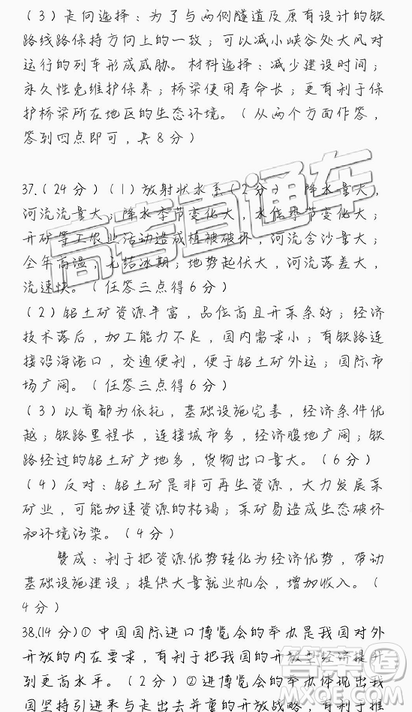 (3)走向选择:为了与两侧隧道及原有设计的铁
路线路保持方向上的一致;可以减小峡谷处大风对
运行的列车形成威胁。材料选择:减少建设时间;
永久性免维护保养;桥梁使用寿命长;更有利于保
护桥梁所在地区的生态环境。(从两个方面作答,
答到四点即可,共8分)
37.(24分)(1)放射状水系(2分) 降水量大,
河流流量大;降水季节变化大,水位季节变化大;
开矿等工农业活动造成植被破坏,河流含沙量大;
全年高温,无结冰期;地势起伏大,河流落差大,
流速快。(任答三点得6分)
(2)铝土矿资源丰富,品位高且开采条好;经济
技术落后,加工能力不足,国内需求小;有铁路连
接沿海港口,交通便利,便于铝土矿外运;国际市
场广阔。(任答三点得6分)
(3)以首都为依托,基础设施完善,经济条件优
越;铁路里程长,连接城市多,经济腹地广阔;铁
路经过的铝土矿产地多,货物出口量大。(6分)
(4)反对:铝土矿是非可再生资源,大力发展采
矿业,可能加速资源的枯竭;采矿易造成生态破坏
和环境污染。(4分)
赞成:利于把资源优势转化为经济优势,带动
基础设施建设;提供大量就业机会,增加收入。(
4分)
38.(14分)①中国国际进口博览会的举办是我国对外
开放的内在要求,有利于把我国的开放型经济提升
到更高水平。(2分)②进博览会的举办体现出我
国坚持引进来与走出去并重的开放战略,有利于推
高考直通车